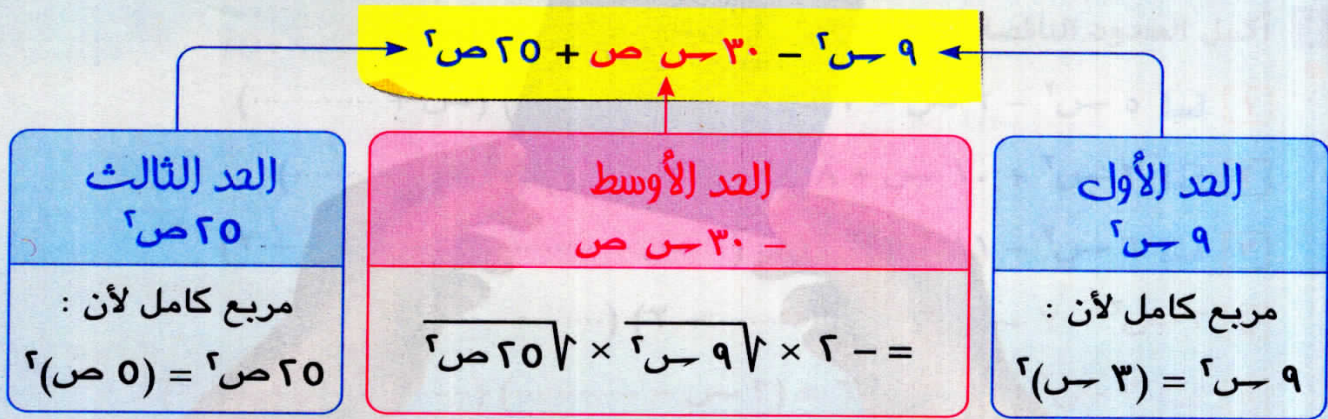 ٩ س² − ٣٠ س ص + ٢٥ ص²
الحد الأول
٩ س²
مربع كامل لأن :
٩ س² = (٣ س)²
الحد الأوسط
− ٣٠ س ص
= − ٢ × √٩ س² × √٢٥ ص²
الحد الثالث
٢٥ ص²
مربع كامل لأن :
٢٥ ص² = (٥ ص)²